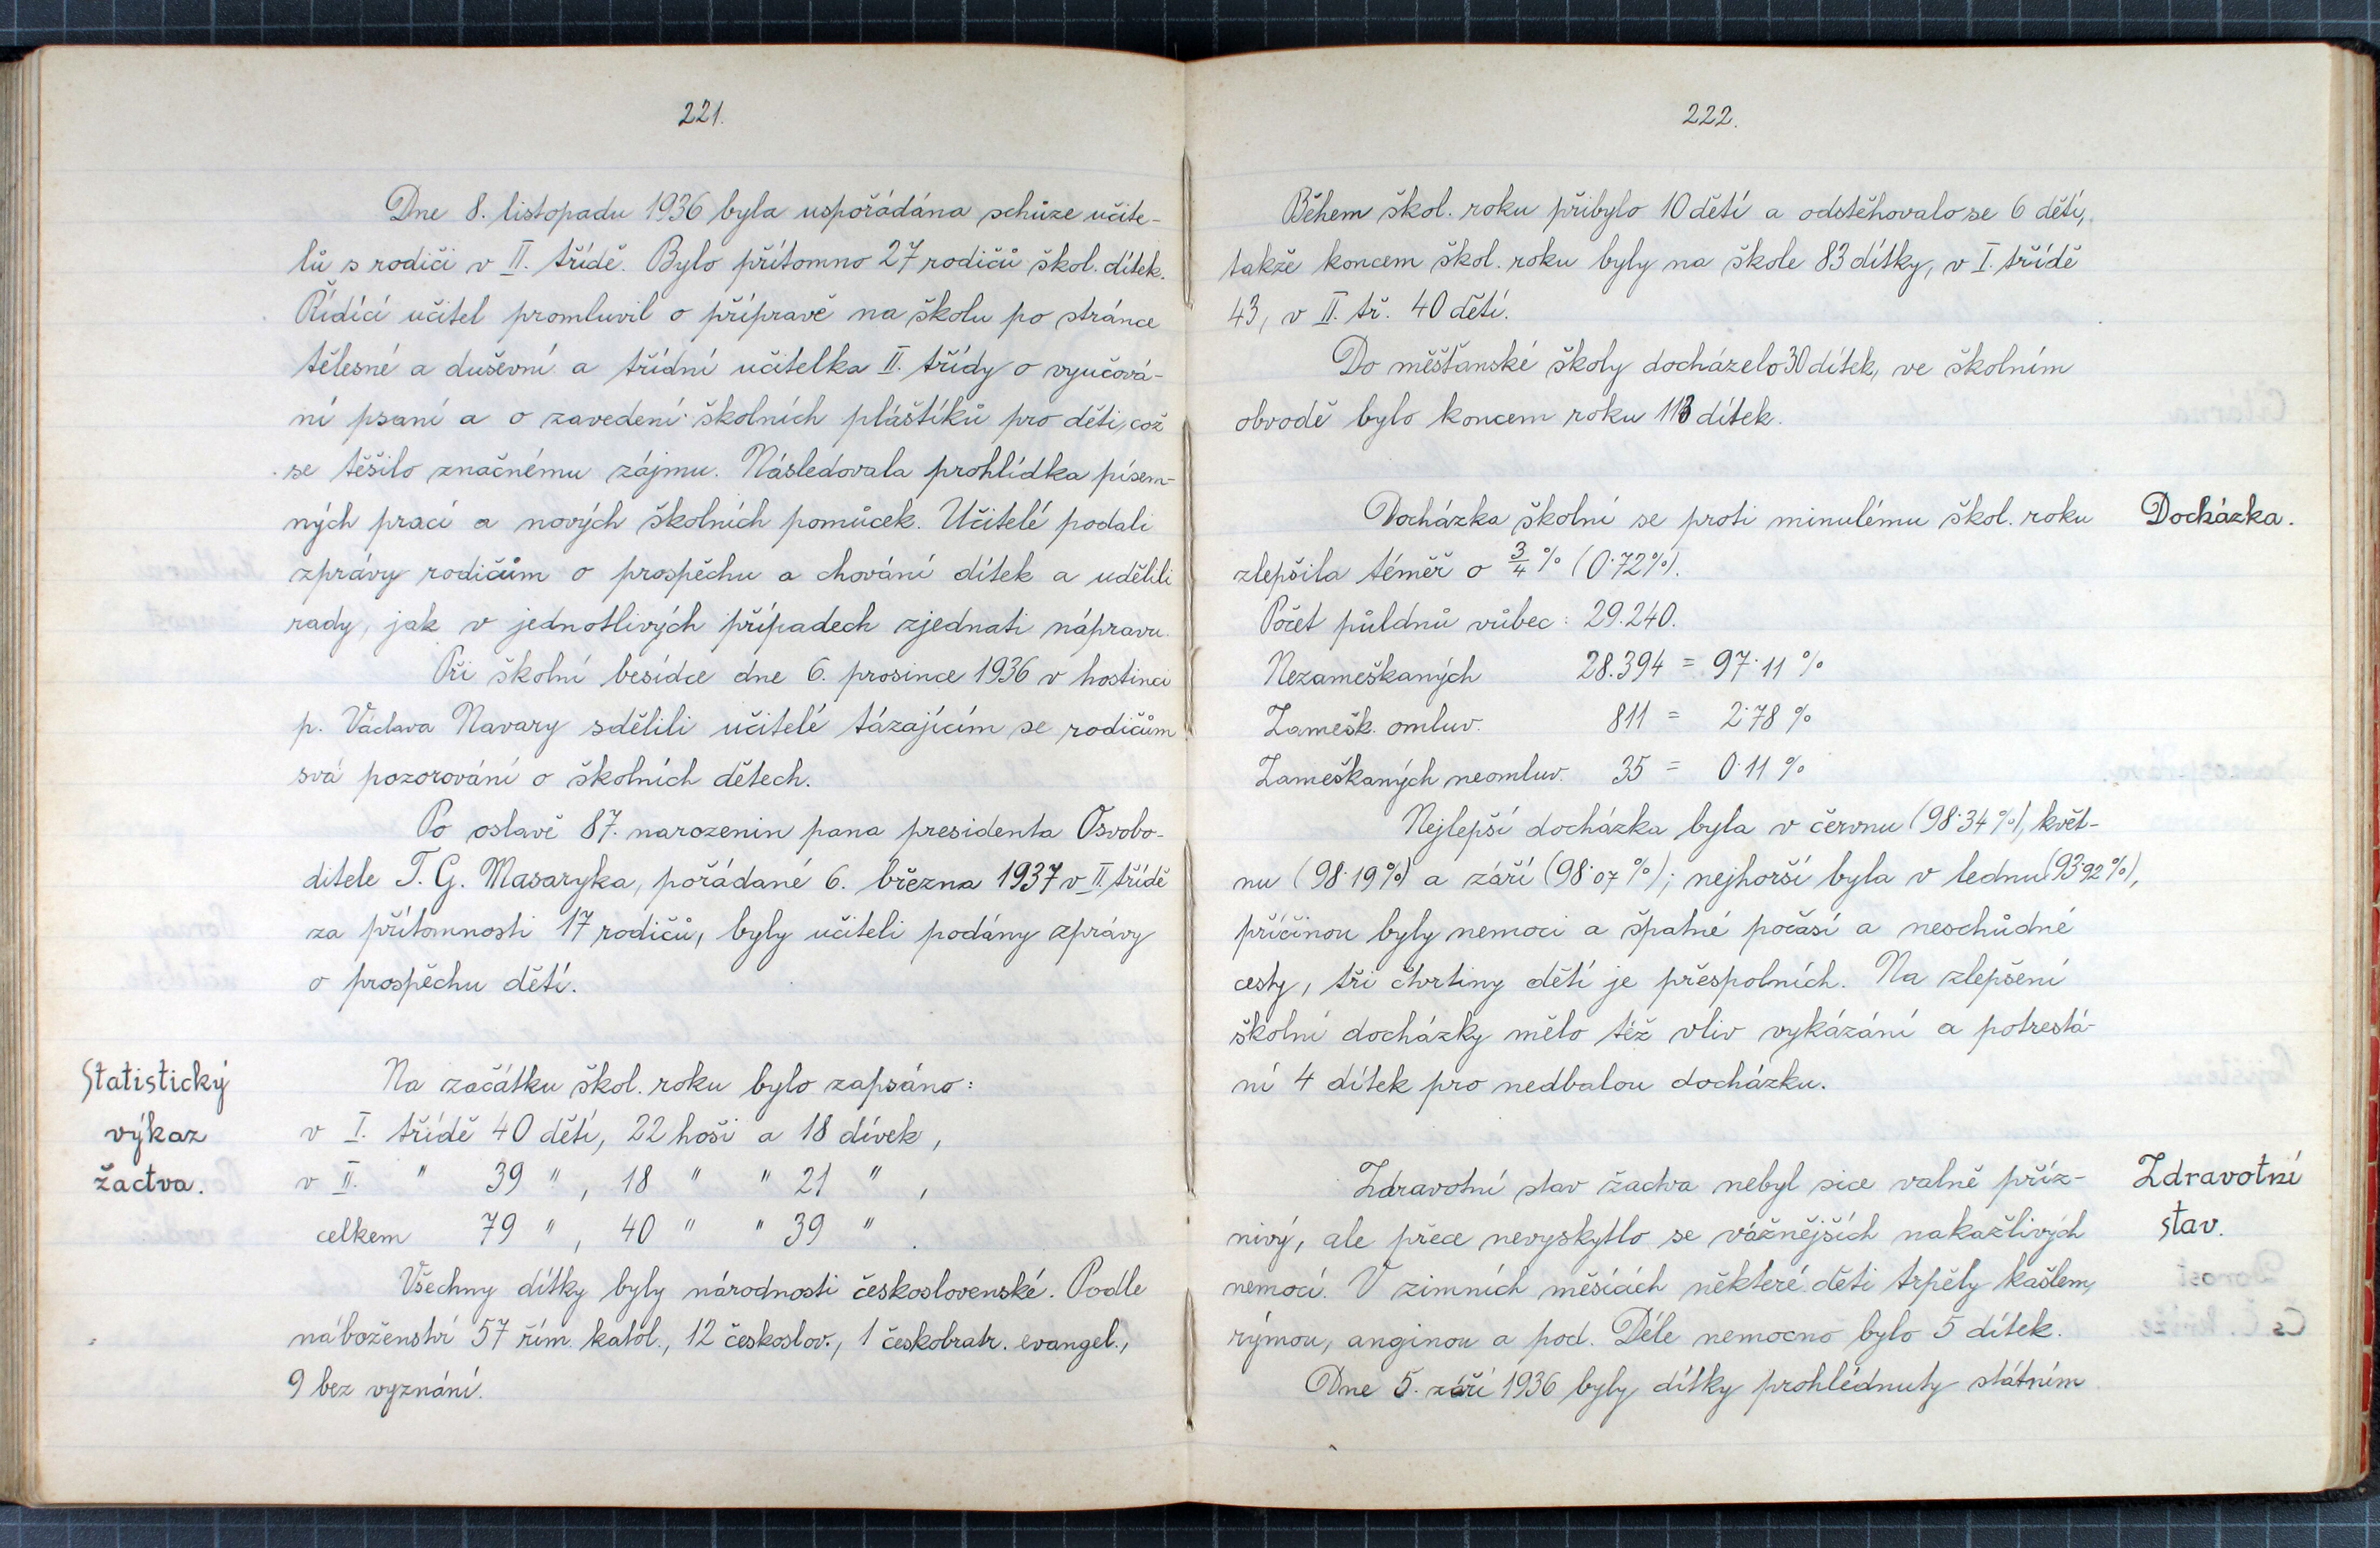 221.
Dne 8. listopadu 1936 byla uspořádána schůze učite-
lů s rodiči v II. třídě. Bylo přítomno 27 rodičů škol. dítek.
Řídící učitel promluvil o přípravě na školu po stránce
tělesné a duševní a třídní učitelka II. třídy o vyučová-
ní psaní a o zavedení školních pláštíků pro děti, což
se těšilo značnému zájmu. Následovala prohlídka písem-
ných prací a nových školních pomůcek. Učitelé podali
zprávy rodičům o prospěchu a chování dítek a udělili
rady, jak v jednotlivých případech zjednati nápravu.
Při školní besídce dne 6. prosince 1936 v hostinci
p. Václava Navary sdělili učitelé tázajícím se rodičům
svá pozorování o školních dětech.
Po oslavě 87. narozenin pana presidenta Osvobo-
ditele T. G. Masaryka, pořádané 6. března 1937 v II. třídě
za přítomnosti 17 rodičů, byly učiteli podány zprávy
o prospěchu dětí.
Statistický
výkaz
žactva.
Na začátku škol. roku bylo zapsáno:
v I. třídě 40 dětí, 22 hoši a 18 dívek,
v II. " 39 ", 18 " " 21 ",
celkem 79 ", 40 " " 39 ".
Všechny dítky byly národnosti československé. Podle
náboženství 57 řím. katol., 12 českoslov., 1 českobratr. evangel.,
9 bez vyznání.
222.
Během škol. roku přibylo 10 dětí a odstěhovalo se 6 dětí,
takže koncem škol. roku byly na škole 83 dítky, v I. třídě
43, v II. tř. 40 dětí.
Do měšťanské školy docházelo 30 dítek, ve školním
obvodě bylo koncem roku 113 dítek.
Docházka školní se proti minulému škol. roku
Docházka.
zlepšila téměř o 3/4 % (0·72%).
Počet půldnů vůbec: 29.240.
Nezameškaných 28.394 = 97·11 %
Zamešk. omluv. 811 = 2·78 %
Zameškaných neomluv. 35 = 0·11 %
Nejlepší docházka byla v červnu (98·34%), květ-
nu (98·19%) a září (98·07%); nejhorší byla v lednu (93·92%),
příčinou byly nemoci a špatné počasí a neschůdné
cesty, tři čtvrtiny dětí je přespolních. Na zlepšení
školní docházky mělo též vliv vykázání a potrestá-
ní 4 dítek pro nedbalou docházku.
Zdravotní stav žactva nebyl sice valně příz-
Zdravotní
stav.
nivý, ale přece nevyskytlo se vážnějších nakažlivých
nemocí. V zimních měsících některé děti trpěly kašlem,
rýmou, anginou a pod. Déle nemocno bylo 5 dítek.
Dne 5. září 1936 byly dítky prohlédnuty státním